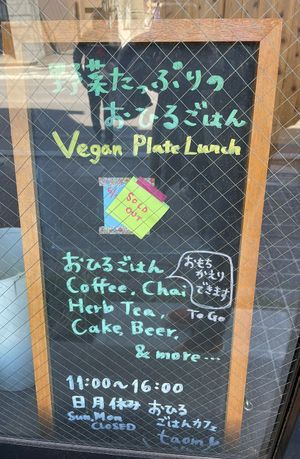 野菜たっぷりの
おひるごはん
Vegan Plate Lunch
SOLD
OUT
おひるごはん
Coffee, Chai
Herb Tea,
Cake, Beer,
& more...
おもち
かえり
できます
To Go
11:00~16:00
日月休み
Sun, Mon
CLOSED
おひる
ごはんカフェ